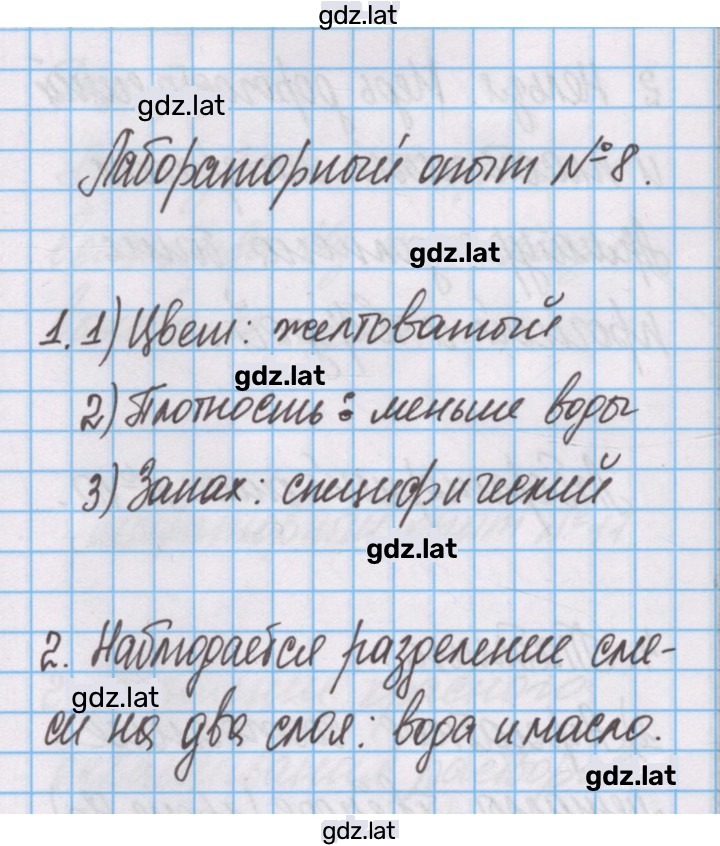 gdz.lat
gdz.lat
Лабораторный опыт №8.
gdz.lat
1. 1) Цвет: желтоватый
gdz.lat
2) Плотность: меньше воды
3) Запах: специфический
gdz.lat
2. Наблюдается разделение сме-
gdz.lat
си на два слоя: вода и масло.
gdz.lat
gdz.lat